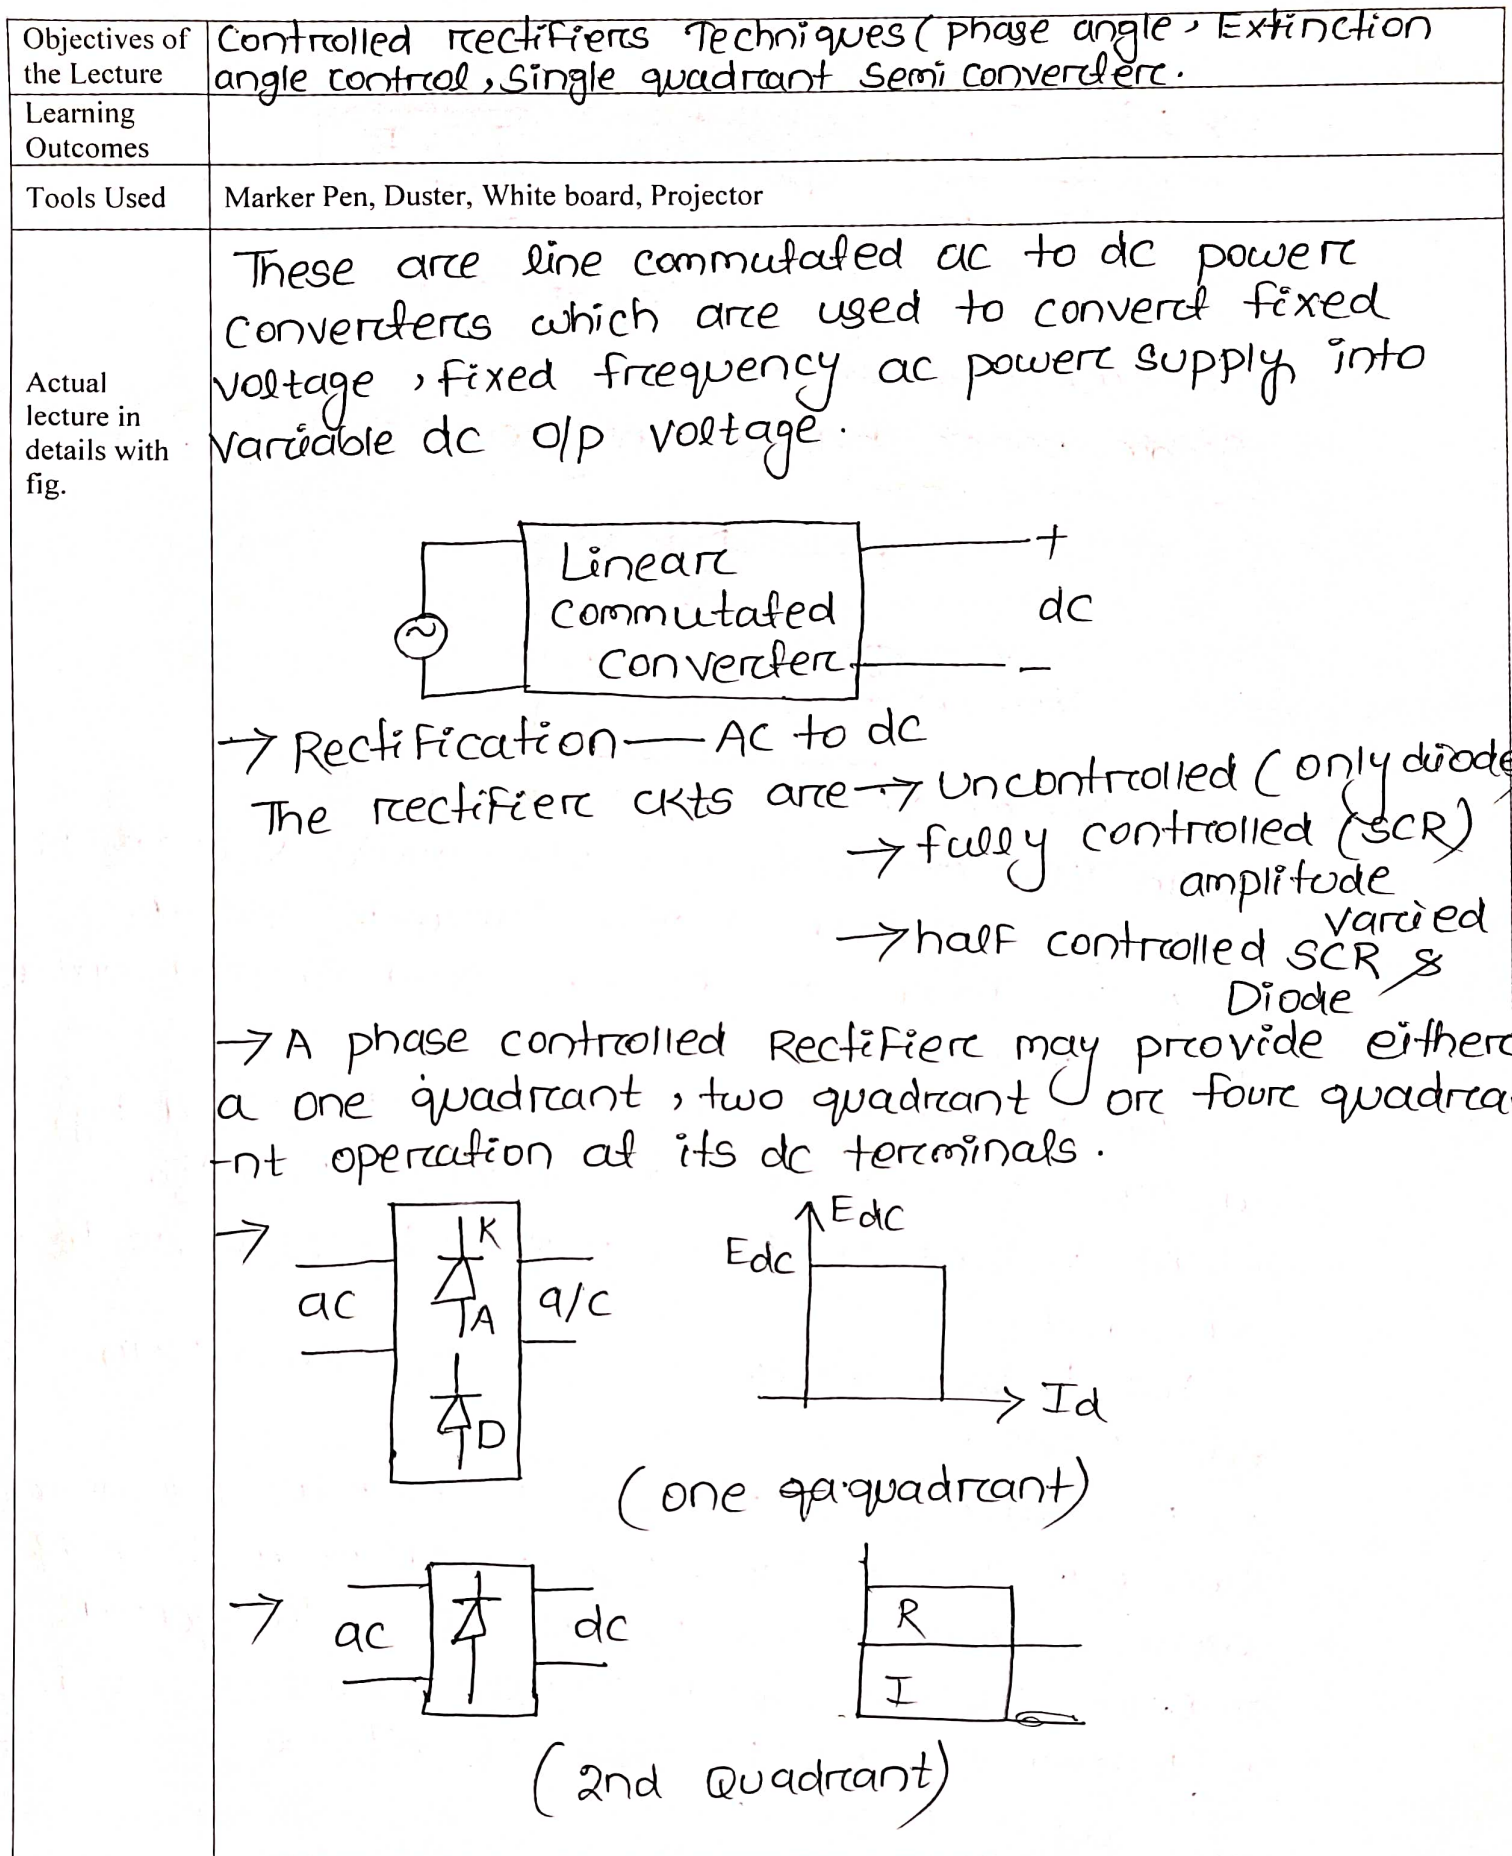 Objectives of the Lecture
Controlled rectifiers Techniques (phase angle, Extinction
angle control, Single quadrant Semi converter.
Learning Outcomes
Tools Used
Marker Pen, Duster, White board, Projector
Actual lecture in details with fig.
These are line commutated ac to dc power
converters which are used to convert fixed
voltage, fixed frequency ac power supply into
variable dc o/p voltage.
Linear
commutated
converter
+
dc
-
→ Rectification — AC to dc
The rectifier ckts are → uncontrolled (only diode)
→ fully controlled (SCR)
amplitude
varied
→ half controlled SCR &
Diode
→ A phase controlled Rectifier may provide either
a one quadrant, two quadrant or four quadra
-nt operation at its dc terminals.
→
ac
K
A
D
a/c
Edc
Edc
Id
(one qa quadrant)
→
ac
dc
R
I
(2nd Quadrant)